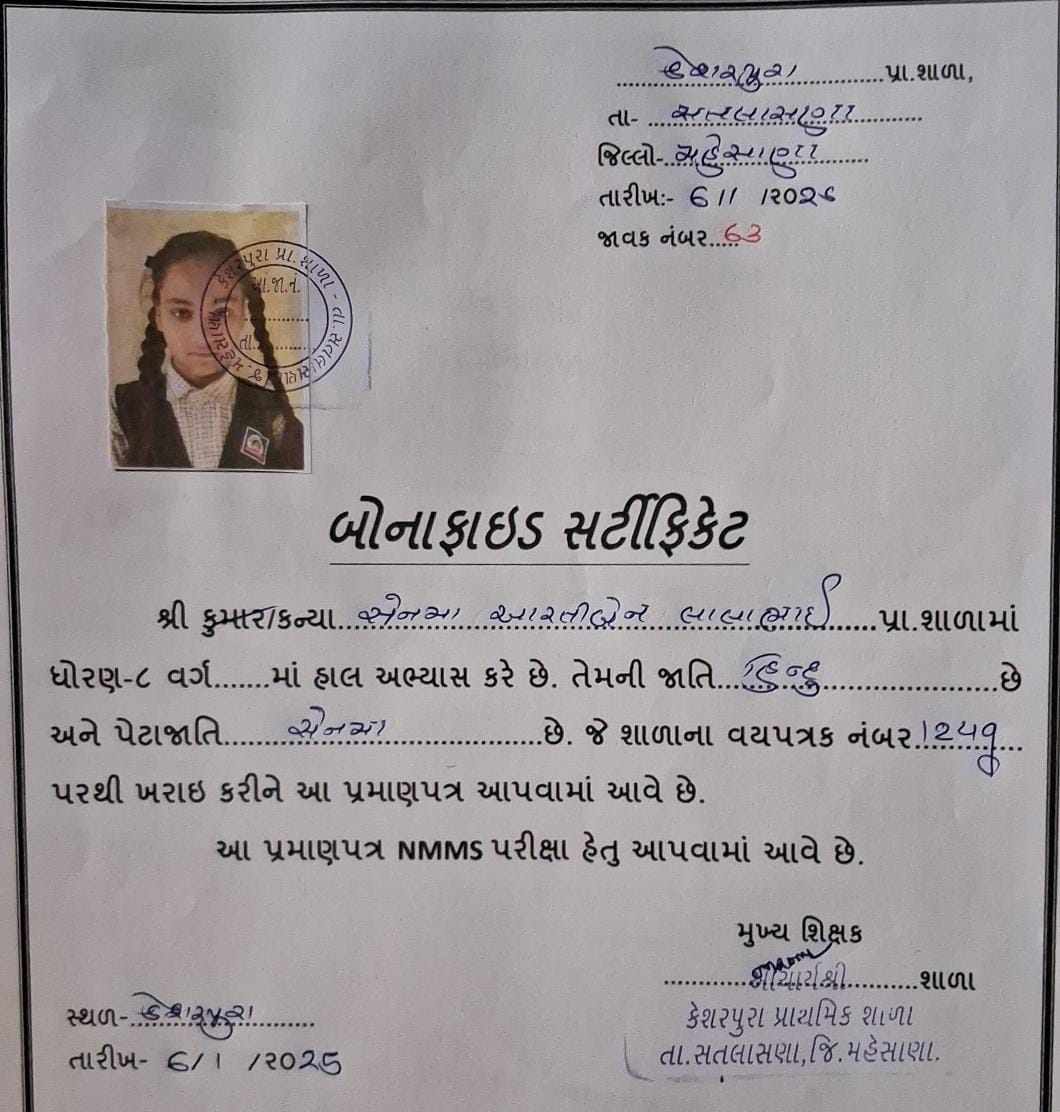 કેશરપુરા પ્રા.શાળા,
તા- સતલાસણા
જિલ્લો- મહેસાણા
તારીખ:- 6/1 /૨૦25
જાવક નંબર..... 63
કેશરપુરા પ્રા. શાળા - તા. સતલાસણા જી. મહેસાણા
આ.જા.નં.
તા.
બોનાફાઇડ સર્ટીફિકેટ
શ્રી કુમાર/કન્યા સેનમા આરતીબેન લાલાભાઈ પ્રા.શાળામાં
ધોરણ-૮ વર્ગ.......માં હાલ અભ્યાસ કરે છે. તેમની જાતિ હિન્દુ છે
અને પેટાજાતિ સેનમા છે. જે શાળાના વયપત્રક નંબર
પરથી ખરાઇ કરીને આ પ્રમાણપત્ર આપવામાં આવે છે.
આ પ્રમાણપત્ર NMMS પરીક્ષા હેતુ આપવામાં આવે છે.
મુખ્ય શિક્ષક
આચાર્યશ્રી શાળા
કેશરપુરા પ્રાથમિક શાળા
તા.સતલાસણા,જિ.મહેસાણા.
સ્થળ- કેશરપુરા
તારીખ- 6/1 /૨૦25